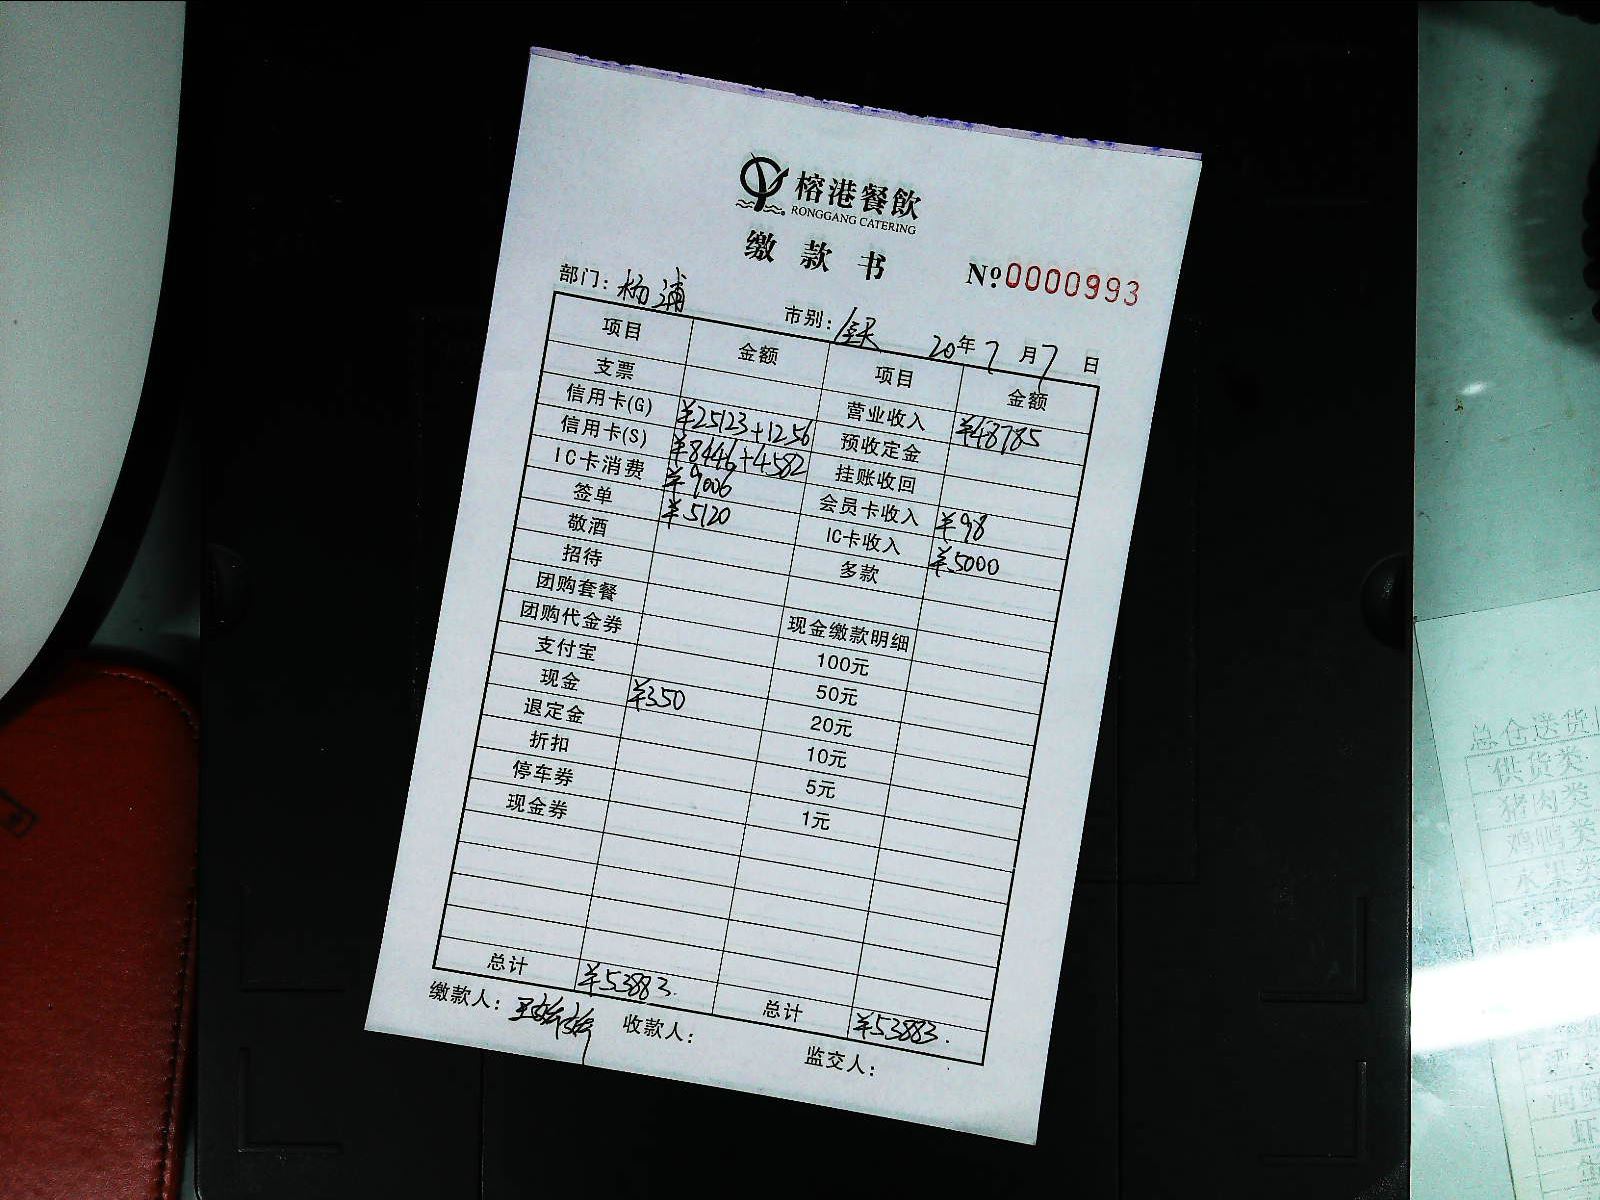 榕港餐飲
RONGGANG CATERING
缴款书
Nº:0000993
部门：杨浦 市别： 20年7月7日
项目 金额 项目 金额
支票 营业收入 ¥48785
信用卡(G) ¥25123+1256 预收定金
信用卡(S) ¥8446+4582 挂账收回
IC卡消费 ¥9006 会员卡收入 ¥98
签单 ¥5120 IC卡收入 ¥5000
敬酒 多款
招待
团购套餐 现金缴款明细
团购代金券 100元
支付宝 50元
现金 ¥350 20元
退定金 10元
折扣 5元
停车券 1元
现金券
总计 ¥53883. 总计 ¥53883.
缴款人： 收款人： 监交人：
总仓送货
供货类
猪肉类
鸡鸭类
水果类